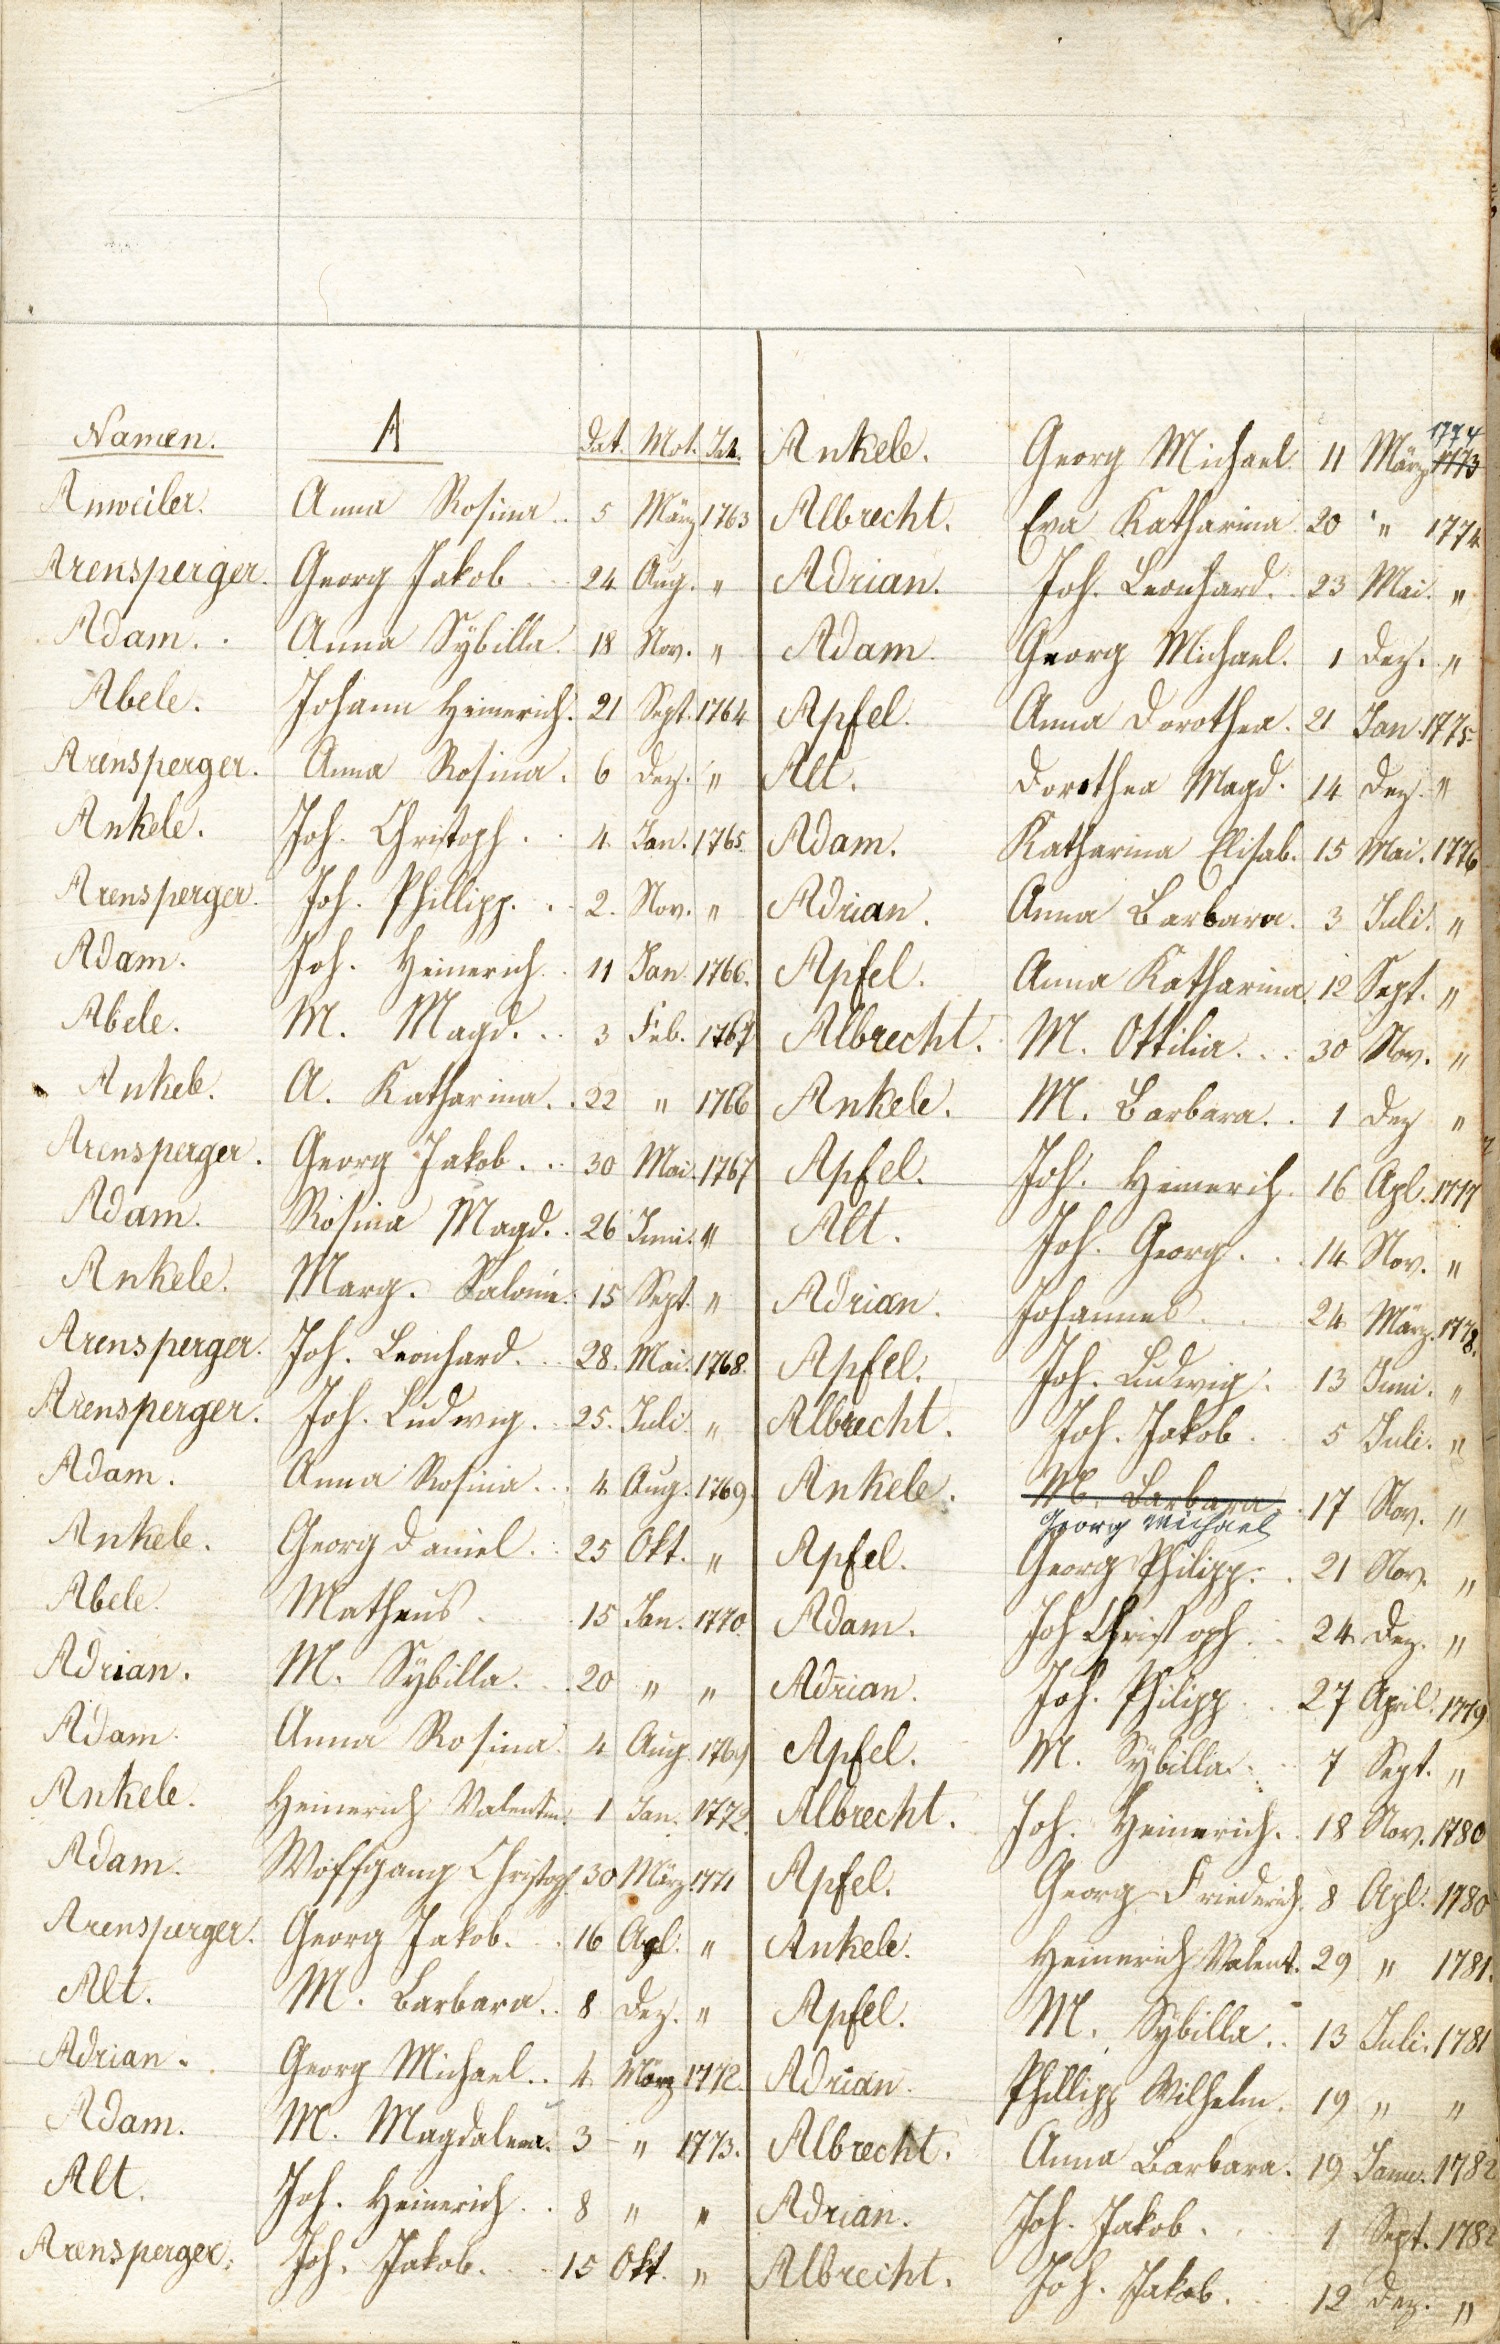 Namen. A Dat. Mot. Jah.
Anweiler. Anna Rosina .. 5 März 1763
Arensperger. Georg Jakob ... 24 Aug. "
Adam. . Anna Sÿbilla. 18 Nov. "
Abele. Johann Heinerich. 21 Sept. 1764
Arensperger. Anna Rosina. 6 Dez. "
Ankele. Joh. Christoph. . 4. Jan. 1765.
Arensperger. Joh. Phillipp. . . 2. Nov. "
Adam. Joh. Heinerich . 11 Jan. 1766.
Abele. M. Magd. .. 3 Feb. 1767
Ankele. A. Katharina. . 22 " 1766
Arensperger. Georg Jakob. .. 30 Mai. 1767
Adam. Rosina Magd. . 26 Juni. "
Ankele. Marg. Salome. 15 Sept. "
Arensperger. Joh. Leonhard. .. 28. Mai. 1768.
Arensperger. Joh. Ludwig. .. 25. Juli. "
Adam. Anna Rosina. .. 4. Aug. 1769.
Ankele. Georg Daniel. . 25 Okt. "
Abele. Matheus. . 15 Jan. 1770.
Adrian. M. Sÿbilla. . . 20 " "
Adam. Anna Rosina. 4 Aug. 1769
Ankele. Heinerich Valentin. 1 Jan. 1772.
Adam. Wolfgang Christoph. 30 März. 1771
Arensperger. Georg Jakob. . . 16 Apl. "
Alt. M. Barbara. . 8 Dez. "
Adrian. Georg Michael. . 4. März 1772.
Adam. M. Magdalena. 3 " 1773.
Alt. Joh. Heinerich. . 8 " "
Arensperger. Joh. Jakob. . . 15 Okt. "
Ankele. Georg Michael. 11 März 1773 1774
Albrecht. Eva Katharina. 20 " 1774
Adrian. Joh. Leonhard. . 23 Mai. "
Adam. Georg Michael. 1 Dez. "
Apfel. Anna Dorothea. 21 Jan. 1775
Alt. Dorothea Magd. 14 Dez. "
Adam. Katharina Elisab. 15 Mai. 1776
Adrian. Anna Barbara. 3 Juli. "
Apfel. Anna Katharina. 12 Sept. "
Albrecht. M. Ottilia. . . 30 Nov. "
Ankele. M. Barbara. . 1 Dez "
Apfel. Joh. Heinerich. 16 Apl. 1777
Alt. Joh. Georg. . . 14. Nov. "
Adrian. Johannes. . . 24 März. 1778.
Apfel. Joh. Ludwig. 13 Juni. "
Albrecht. Joh. Jakob. 5 Juli. "
Ankele. M. Barbara. . 17 Nov. "
Georg Michael
Apfel. Georg Philipp. . 21 Nov. "
Adam. Joh Christoph. . 24. Dez. "
Adrian. Joh. Philipp . . 27 April. 1779
Apfel. M. Sÿbilla. . 7 Sept. "
Albrecht. Joh. Heinerich. . 18 Nov. 1780
Apfel. Georg Friederich. 8 Apl. 1780
Ankele. Heinerich Valent. 29 " 1781.
Apfel. M. Sÿbilla. . 13 Juli. 1781
Adrian. Phillipp Wilhelm. 19 " "
Albrecht. Anna Barbara. 19 Janu. 1782
Adrian. Joh. Jakob. . . 1 Sept. 1782
Albrecht. Joh. Jakob. . 12 Dez. "